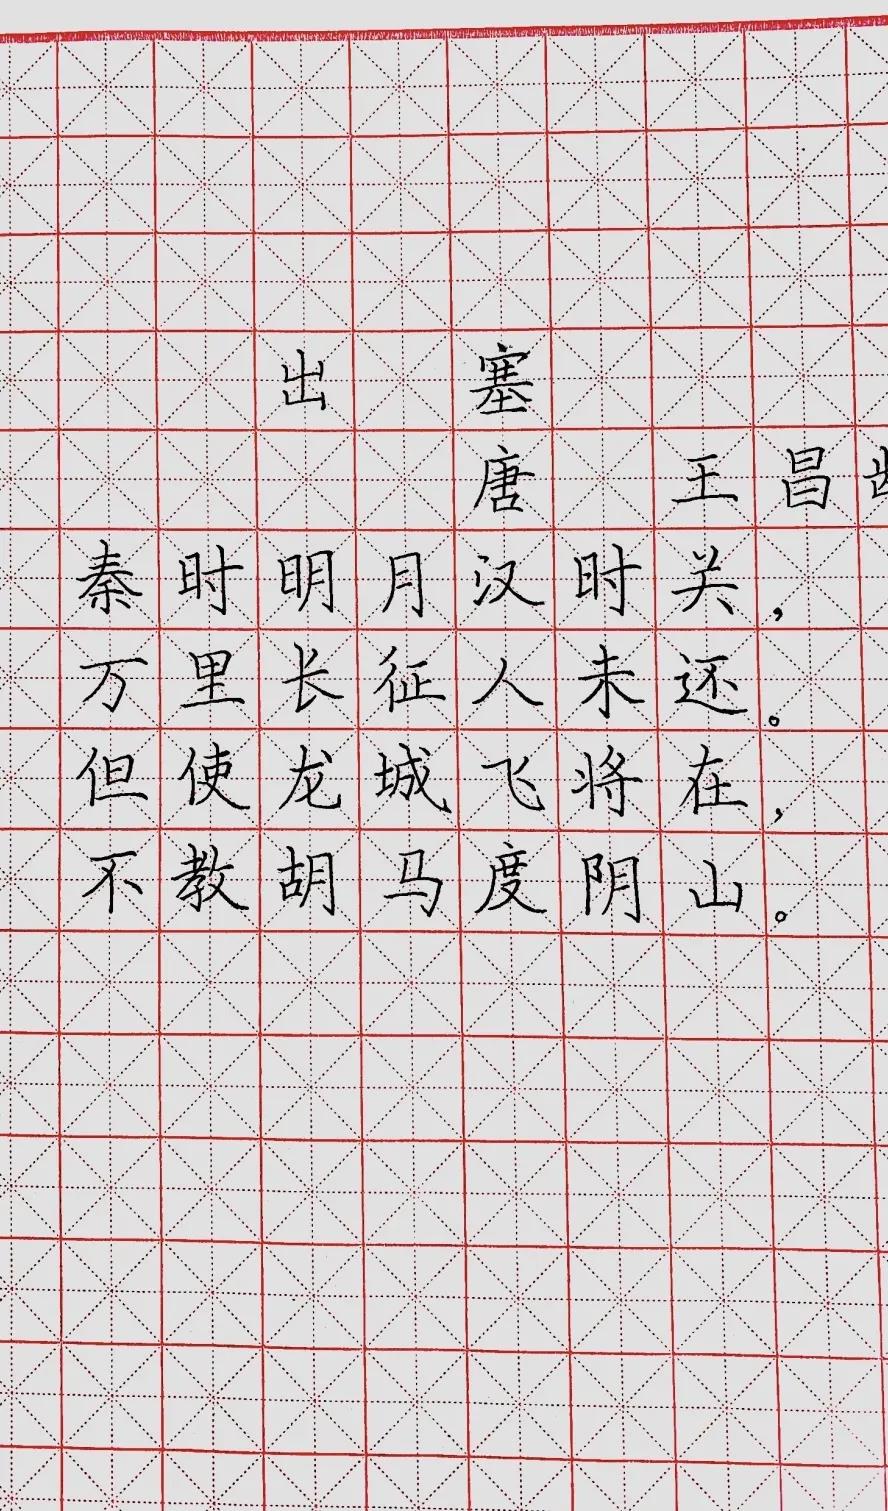 出 塞
唐 王昌龄
秦时明月汉时关，
万里长征人未还。
但使龙城飞将在，
不教胡马度阴山。